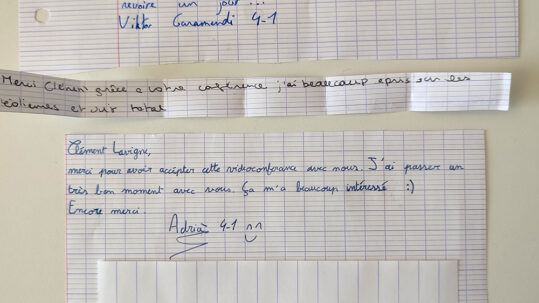 revoire un jour ...
Viktor Garamendi 4-1
Merci Clément grâce a votre conférence j'ai beaucoup apris sur les
éoliennes et
total
Clément Lavigne,
merci pour avoir accépter cette vidéoconférance avec nous. J'ai passer un
très bon moment avec vous. Ça m'a beaucoup intéressé :)
Encore merci.
Adrià 4-1